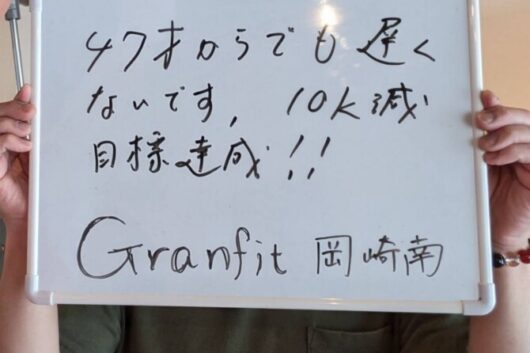 47才からでも遅く
ないです, 10K減
目標達成!!
Granfit 岡崎南